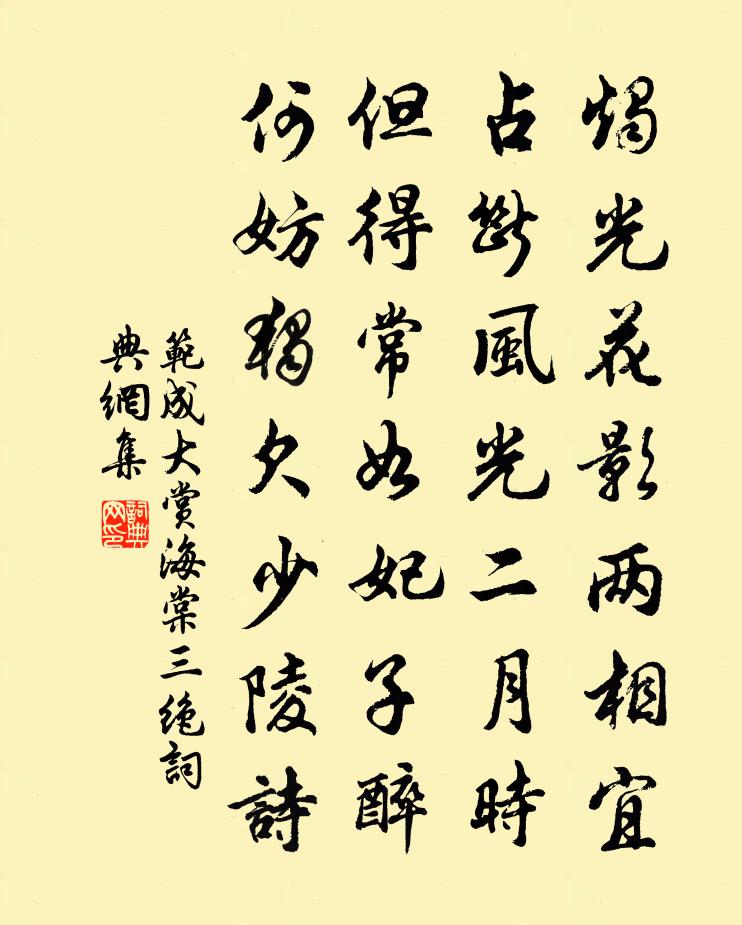 燭光花影兩相宜
占斷風光二月時
但得常如妃子醉
何妨獨欠少陵詩
範成大賞海棠三絶詞
典網集
詞典
网印